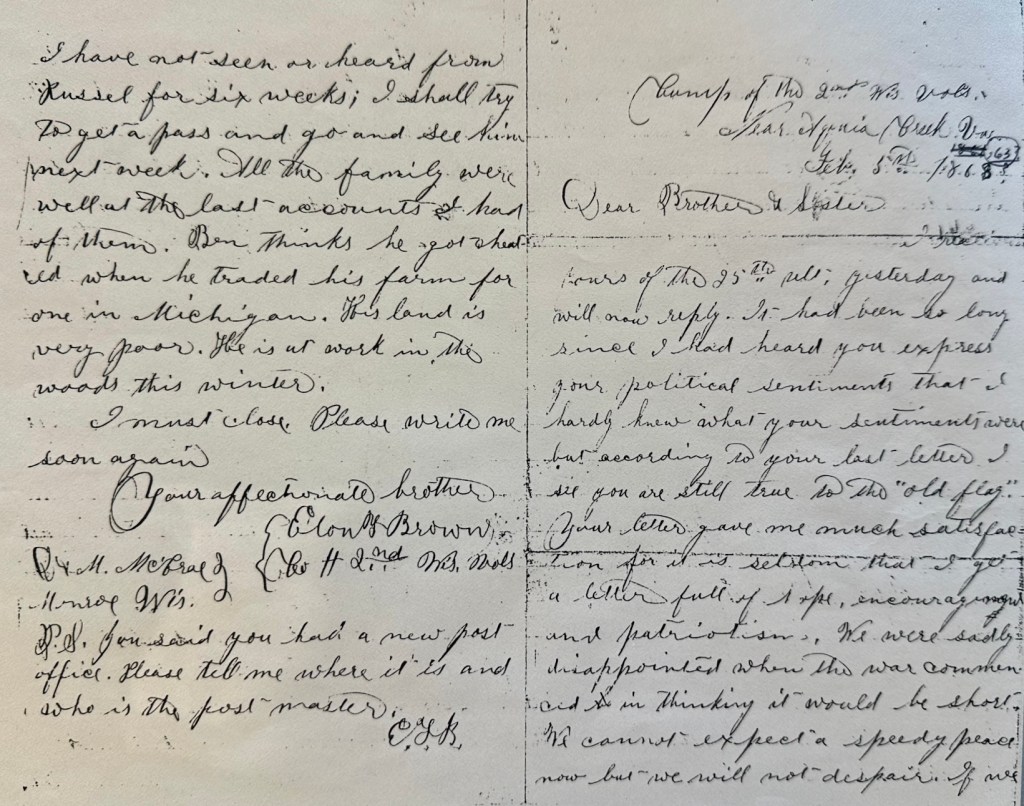 I have not seen or heard from
Russel for six weeks; I shall try
to get a pass and go and see him
next week. All the family were
well at the last accounts I had
of them. Ben thinks he got cheat
ed when he traded his farm for
one in Michigan. His land is
very poor. He is at work in the
woods this winter.
I must close. Please write me
soon again
Your affectionate brother
Elon F Brown,
Co H 2nd Wis. Vols
M. McCrae
Monroe Wis.
P.S. You said you had a new post
office. Please tell me where it is and
who is the post master.
E.F.B.
Camp of the 2nd Wis Vols.
Near Creek Va
63
Feb. 5th 186
Dear Brother & Sister
I
yours of the 25th ult, yesterday and
will now reply. It had been so long
since I had heard you express
your political sentiments that I
hardly knew what your sentiments were
but according to your last letter I
see you are still true to the "old flag".
Your letter gave me much satisfac
tion for it is seldom that I get
a letter full of hope, encouragement
and patriotism. We were sadly
disappointed when the war commen
ced in thinking it would be short.
We cannot expect a speedy peace
now but we will not despair. If we